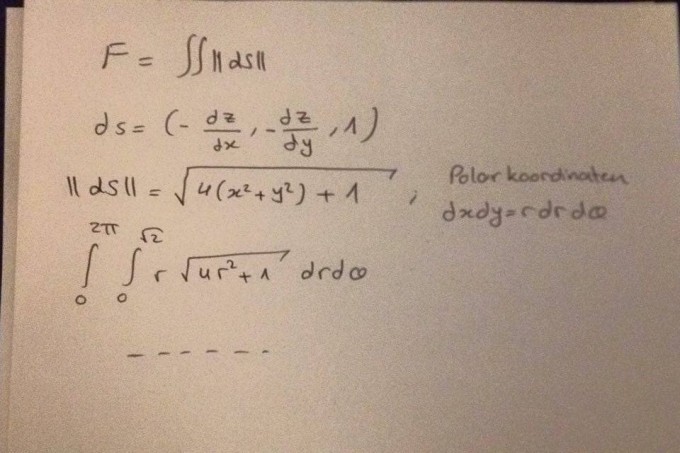 F = ∬ ||ds||
ds = (- dz/dx, - dz/dy, 1)
||ds|| = √(4(x²+y²) + 1) ; Polarkoordinaten
dxdy = r dr dφ
∫₀^{2π} ∫₀^{√2} r √(4r²+1) dr dφ
- - - - - -